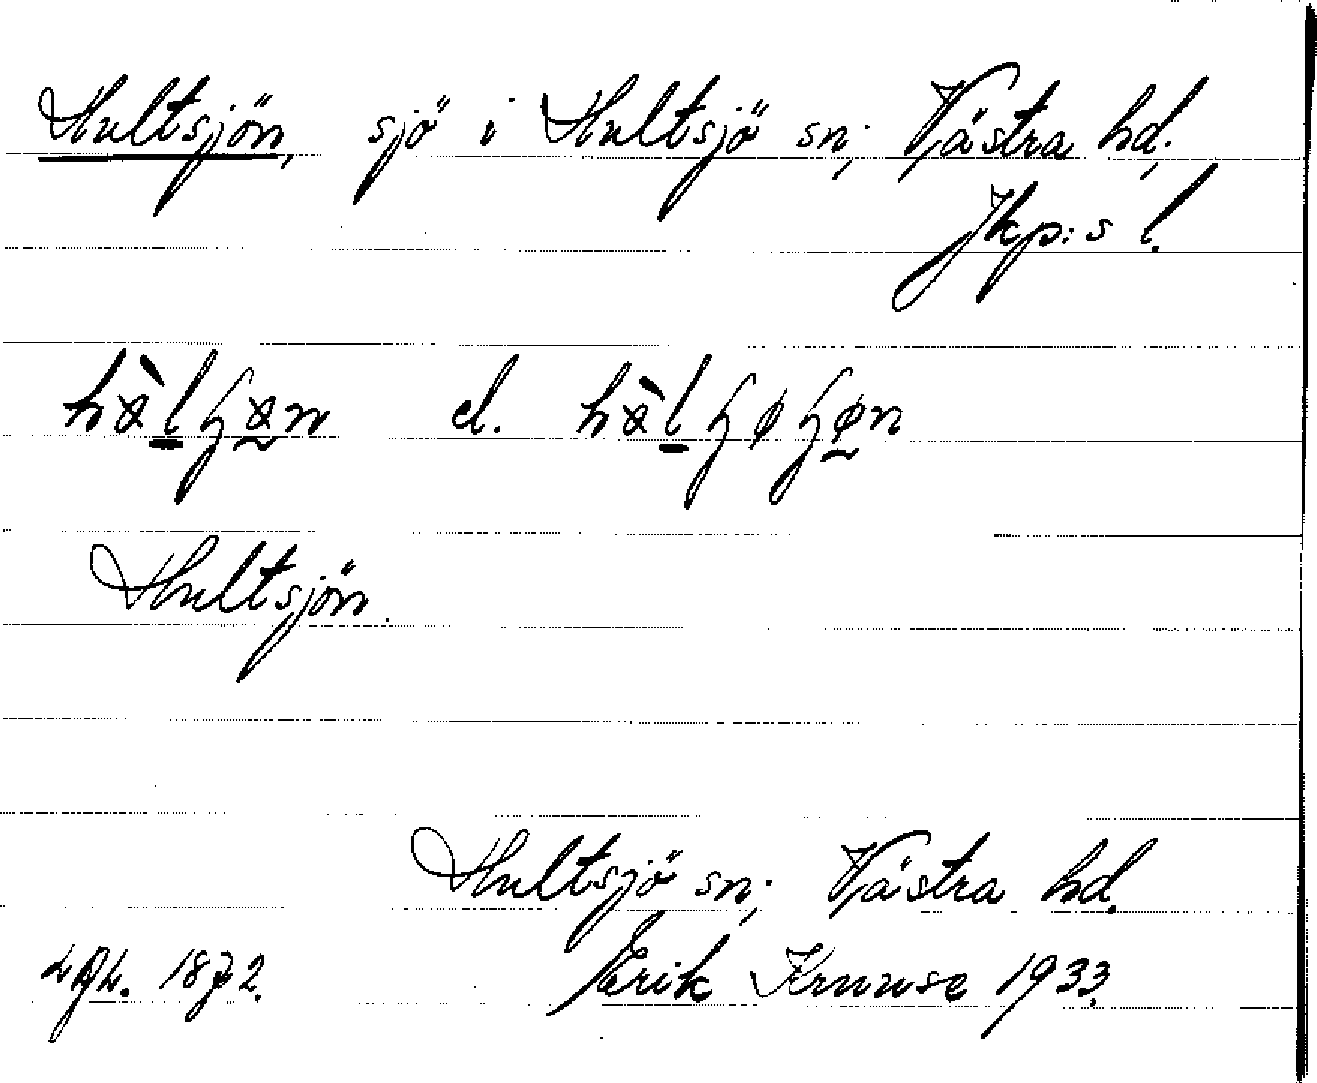 Hultsjön, sjö i Hultsjö sn; Västra hd,
Jkp:s l.
el.
Hultsjön.
Hultsjö sn; Västra hd.
1872. Erik Kruuse 1933.